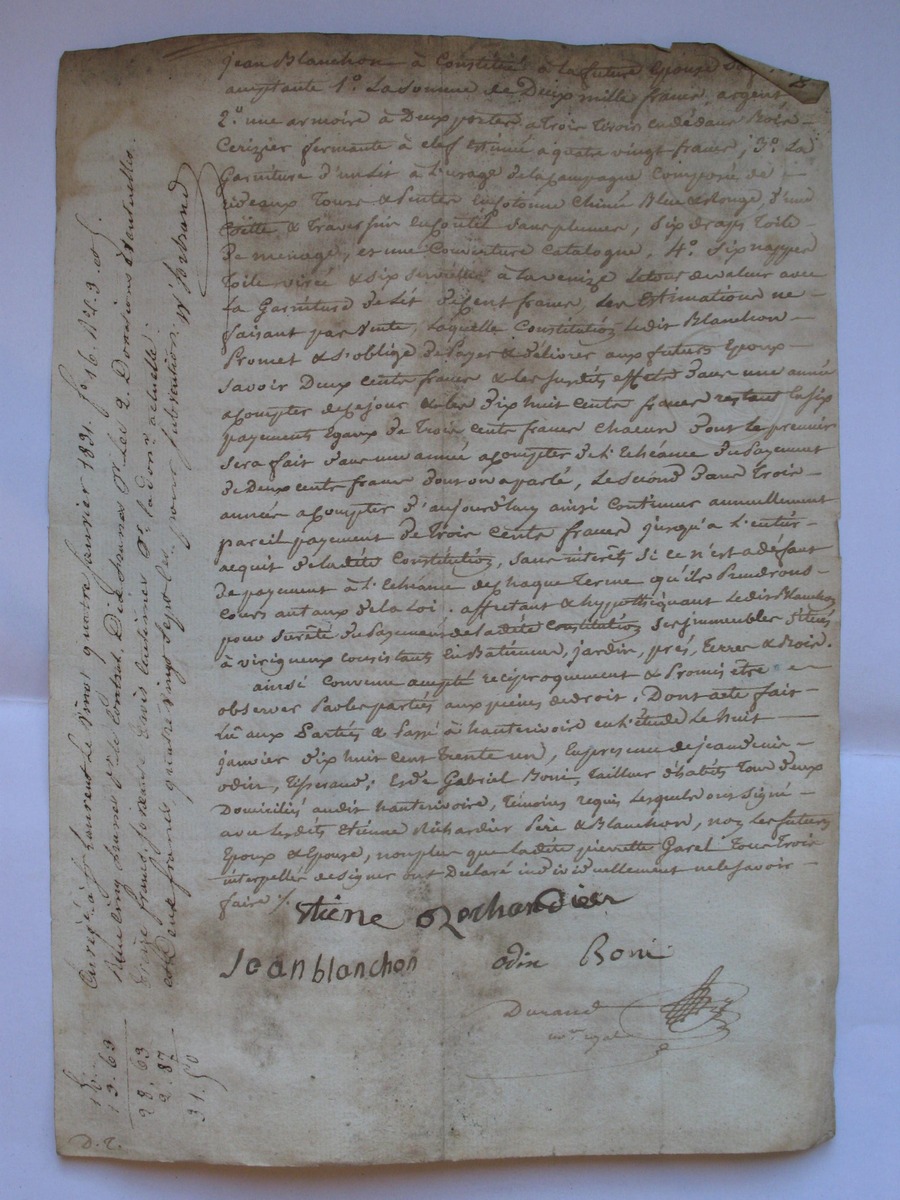 Jean Blanchon à Constitué à la future Epouse
acceptante 1.º La Somme de Deux mille francs, argent
2.º une armoire à Deux portes, a Trois tiroirs en dédans Bois
Cerizier fermante à clef estimée a quatre vingt francs; 3.º La
Garniture d'un Lit à l'usage de la Campagne Composée de
rideaux Tours & Pentes en Cotonne Chiné Bleu & Rouge, d'une
Coitte & Traversin en Coutil Sans plumes, Six draps Toile
De menage, et une Couverture Catalogne, 4.º Six nappes
Toile & Six Serviettes à la venize Le tout de valeur avec
La Garniture De Lit De Cent francs, Les Estimations ne
faisant pas vente, Laquelle Constitution Ledit Blanchon
Promet & S'oblige De Payer & Délivrer aux futurs Epoux
Savoir Deux cents francs & les susdits effets Dans une année
a Compter de ce jour & les Dix huit cents francs restant en Six
payements Egaux De Trois cents francs Chacun Dont le premier
Sera fait Dans une année a Compter de L'Echéance Du Payement
De Deux cents francs Dont on a parlé, Le Second Dans Trois
années a Compter D'aujourd'huy ainsi Continuer annuellement
pareil payement De Trois Cents francs jusqu'a L'entier
acquit De Ladite Constitution, Sans intérêts Si ce n'est a défaut
De payement à L'Echéance de chaque Terme qu'ils Prendrons
Cours au taux de la Loi. affectant & hypothéquant Ledit Blanchon
pour Sureté Du Payement de Ladite Constitution Ses immeubles Situés
à virigneux consistants En Batiments, jardin, prés, Terres & Bois.
ainsi Convenu accepté réciproquement & Promis être
observer Par les parties aux peines de droit. Dont acte fait
Lu aux Parties & Passé à hauterivoire en L'étude Le huit
janvier Dix huit cent Trente un, En presence de jean
odin, Tisserand; Et de Gabriel Boni, Tailleur D'habits Tous Deux
Domiciliés audit hauterivoire, Témoins requis Lesquels ont Signé
avec Lesdits Etienne Richardier Père & Blanchon, non Les futurs
Epoux & Epouse, non plus que Ladite pierrette Garel Tous Trois
interpellés de signer ont Déclaré individuellement ne le Savoir
faire %.
Jean blanchon
odin Boni
Durand
n.re royal
Enregistré à St Laurent Le vingt quatre janvier 1831. f.º 16.
Reçu cinq francs Dix francs p.r Les 2. Donations éventuelles.
Treize francs soixante trois centimes p.r la don.n actuelle.
et Deux francs quatre vingt sept c.es pour subvention.
15.
13. 63
28. 63
2. 87
31. 50
D. R.